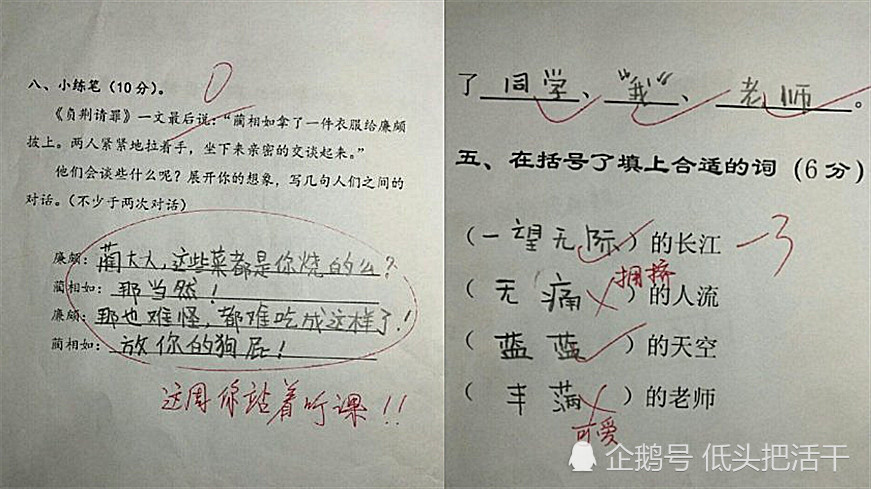 八、小练笔(10分)。
0
《负荆请罪》一文最后说:“蔺相如拿了一件衣服给廉颇
披上。两人紧紧地拉着手,坐下来亲密的交谈起来。”
他们会谈些什么呢?展开你的想象,写几句人们之间的
对话。(不少于两次对话)
廉颇:蔺大人,这些菜都是你烧的么?
蔺相如:那当然!
廉颇:那也难怪,都难吃成这样了!
蔺相如:放你的狗屁!
这周你站着听课!!
了同学、“我”、老师。
五、在括号了填上合适的词(6分)
(一望无际)的长江 -3
拥挤
(无痛)的人流
(蓝蓝)的天空
(丰满)的老师
可爱
企鹅号 低头把活干